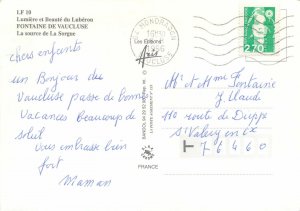 LF 10
Lumière et Beauté du Lubéron
FONTAINE DE VAUCLUSE
La source de La Sorgue
MONDRAGON
16H30
1996
VAUCLUSE
2,70
Les Editions
Avis
chers enfants
un Bonjour du
Vaucluse passe de Bonnes
Vacances Beaucoup de
soleil
Vous embrasse bien
fort
Maman
Mr et Mme Fontaine
J Claude
110 route de Dieppe
St Valery en Cx
T 76460
FRANCE